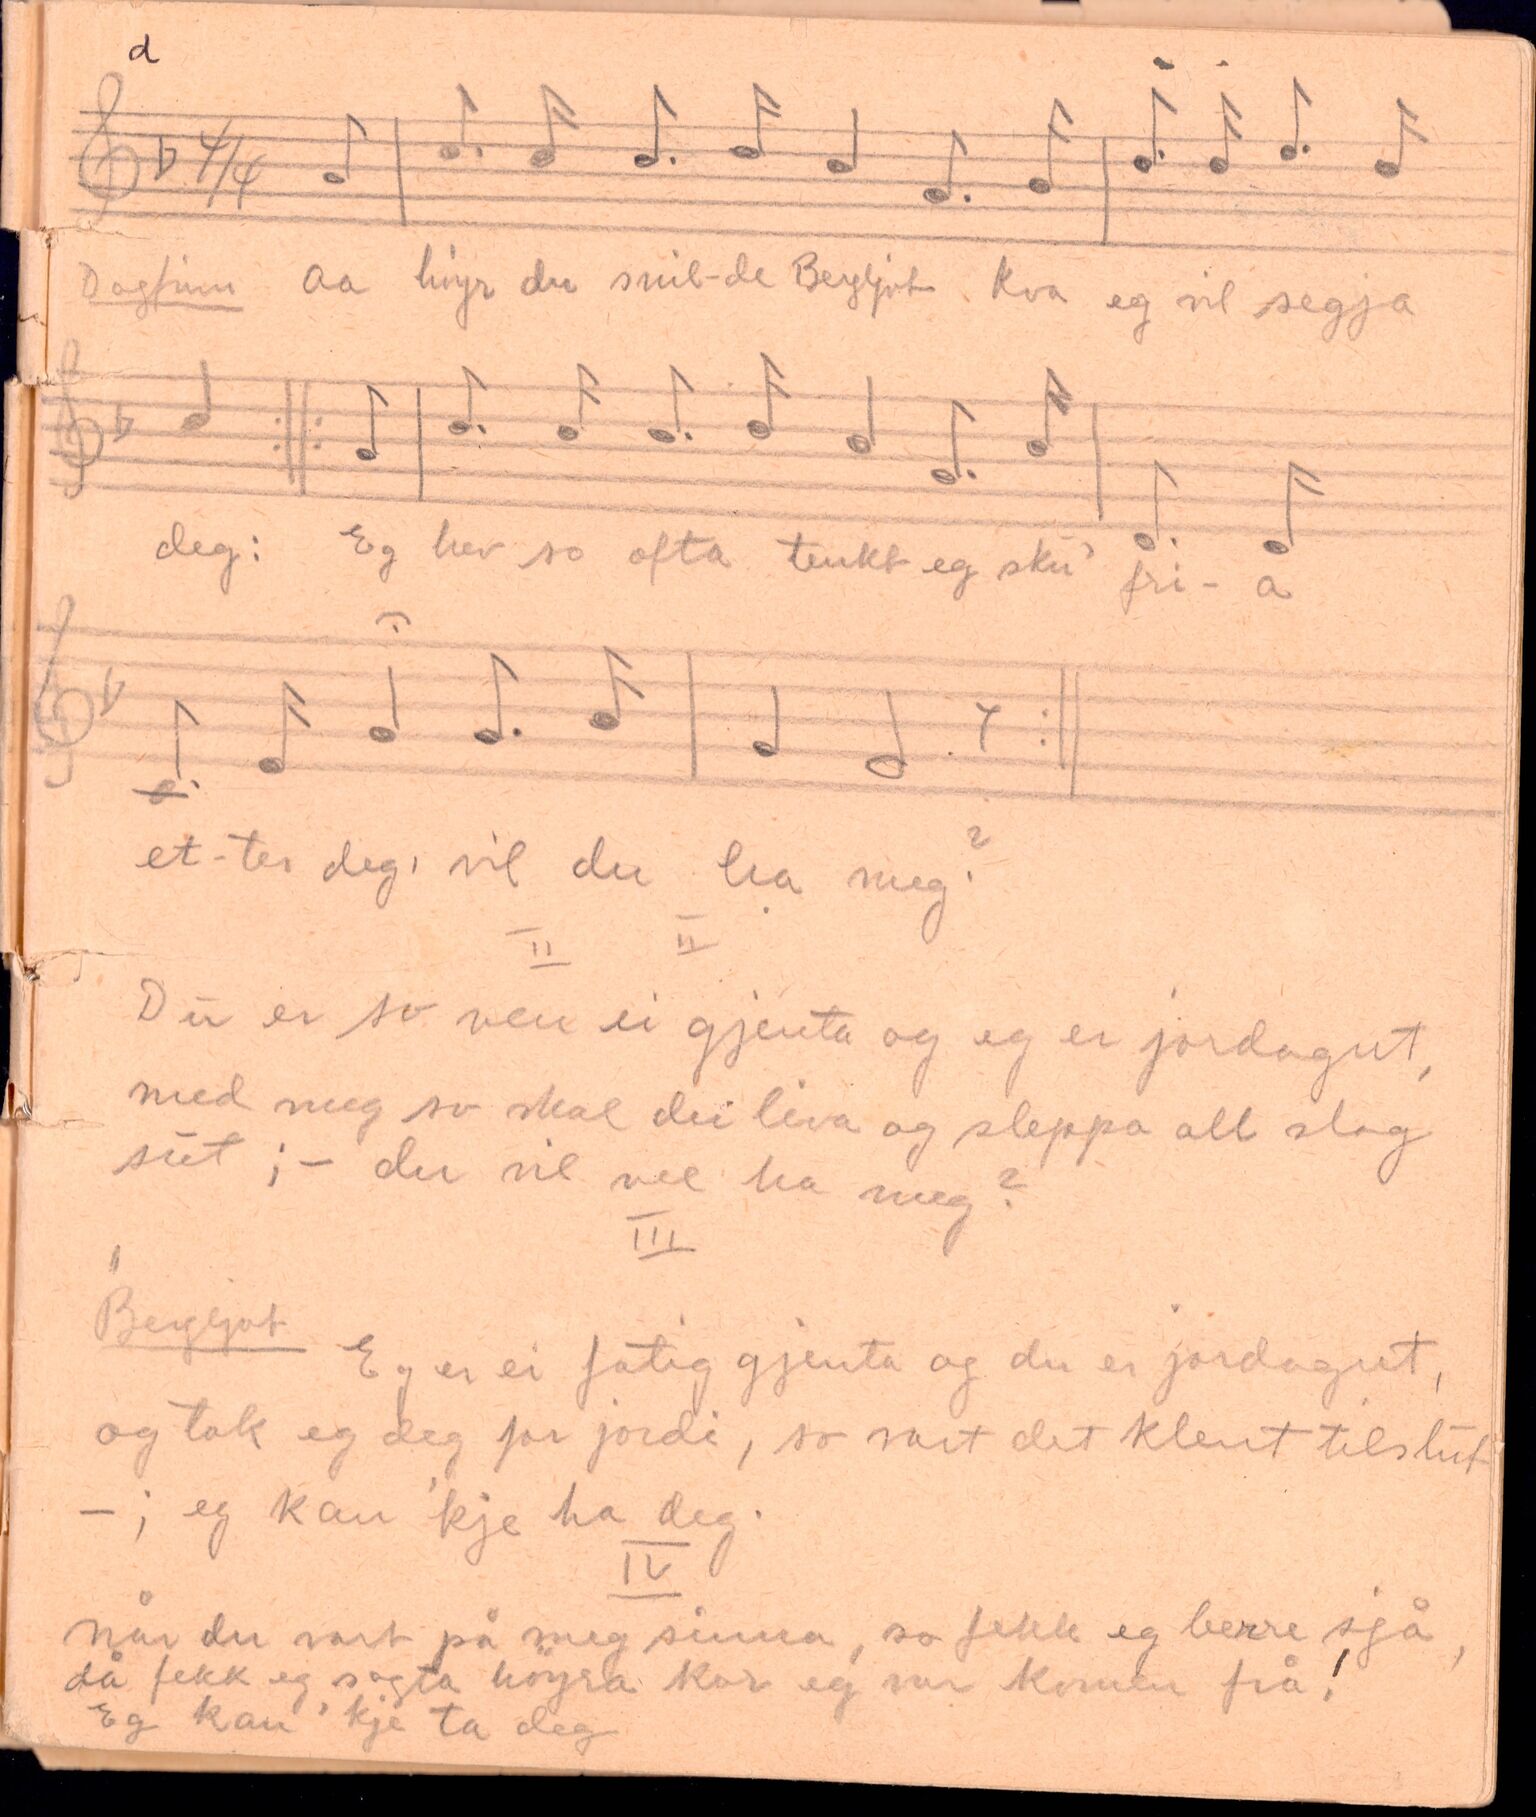 d
4/4
Dagfinn Aa höyr du snil-de Bergljot kva eg vil segja
deg: Eg hev so ofta tenkt eg sku' fri- a
et-ter deg, vil du ha meg?
II II
Du er so ven ei gjenta og eg er jordagut,
med meg so skal du liva og sleppa all slag
sut ;- du vil vel ha meg?
III
Bergljot Eg er ei fatig gjenta og du er jordagut,
og tok eg deg for jordi, so vart det klent tilslut
- ; eg kan 'kje ha deg.
IV
Når du vart på meg sinna, so fekk eg berre sjå,
då fekk eg sagta höyra kor eg var komen frå!
Eg kan 'kje ta deg